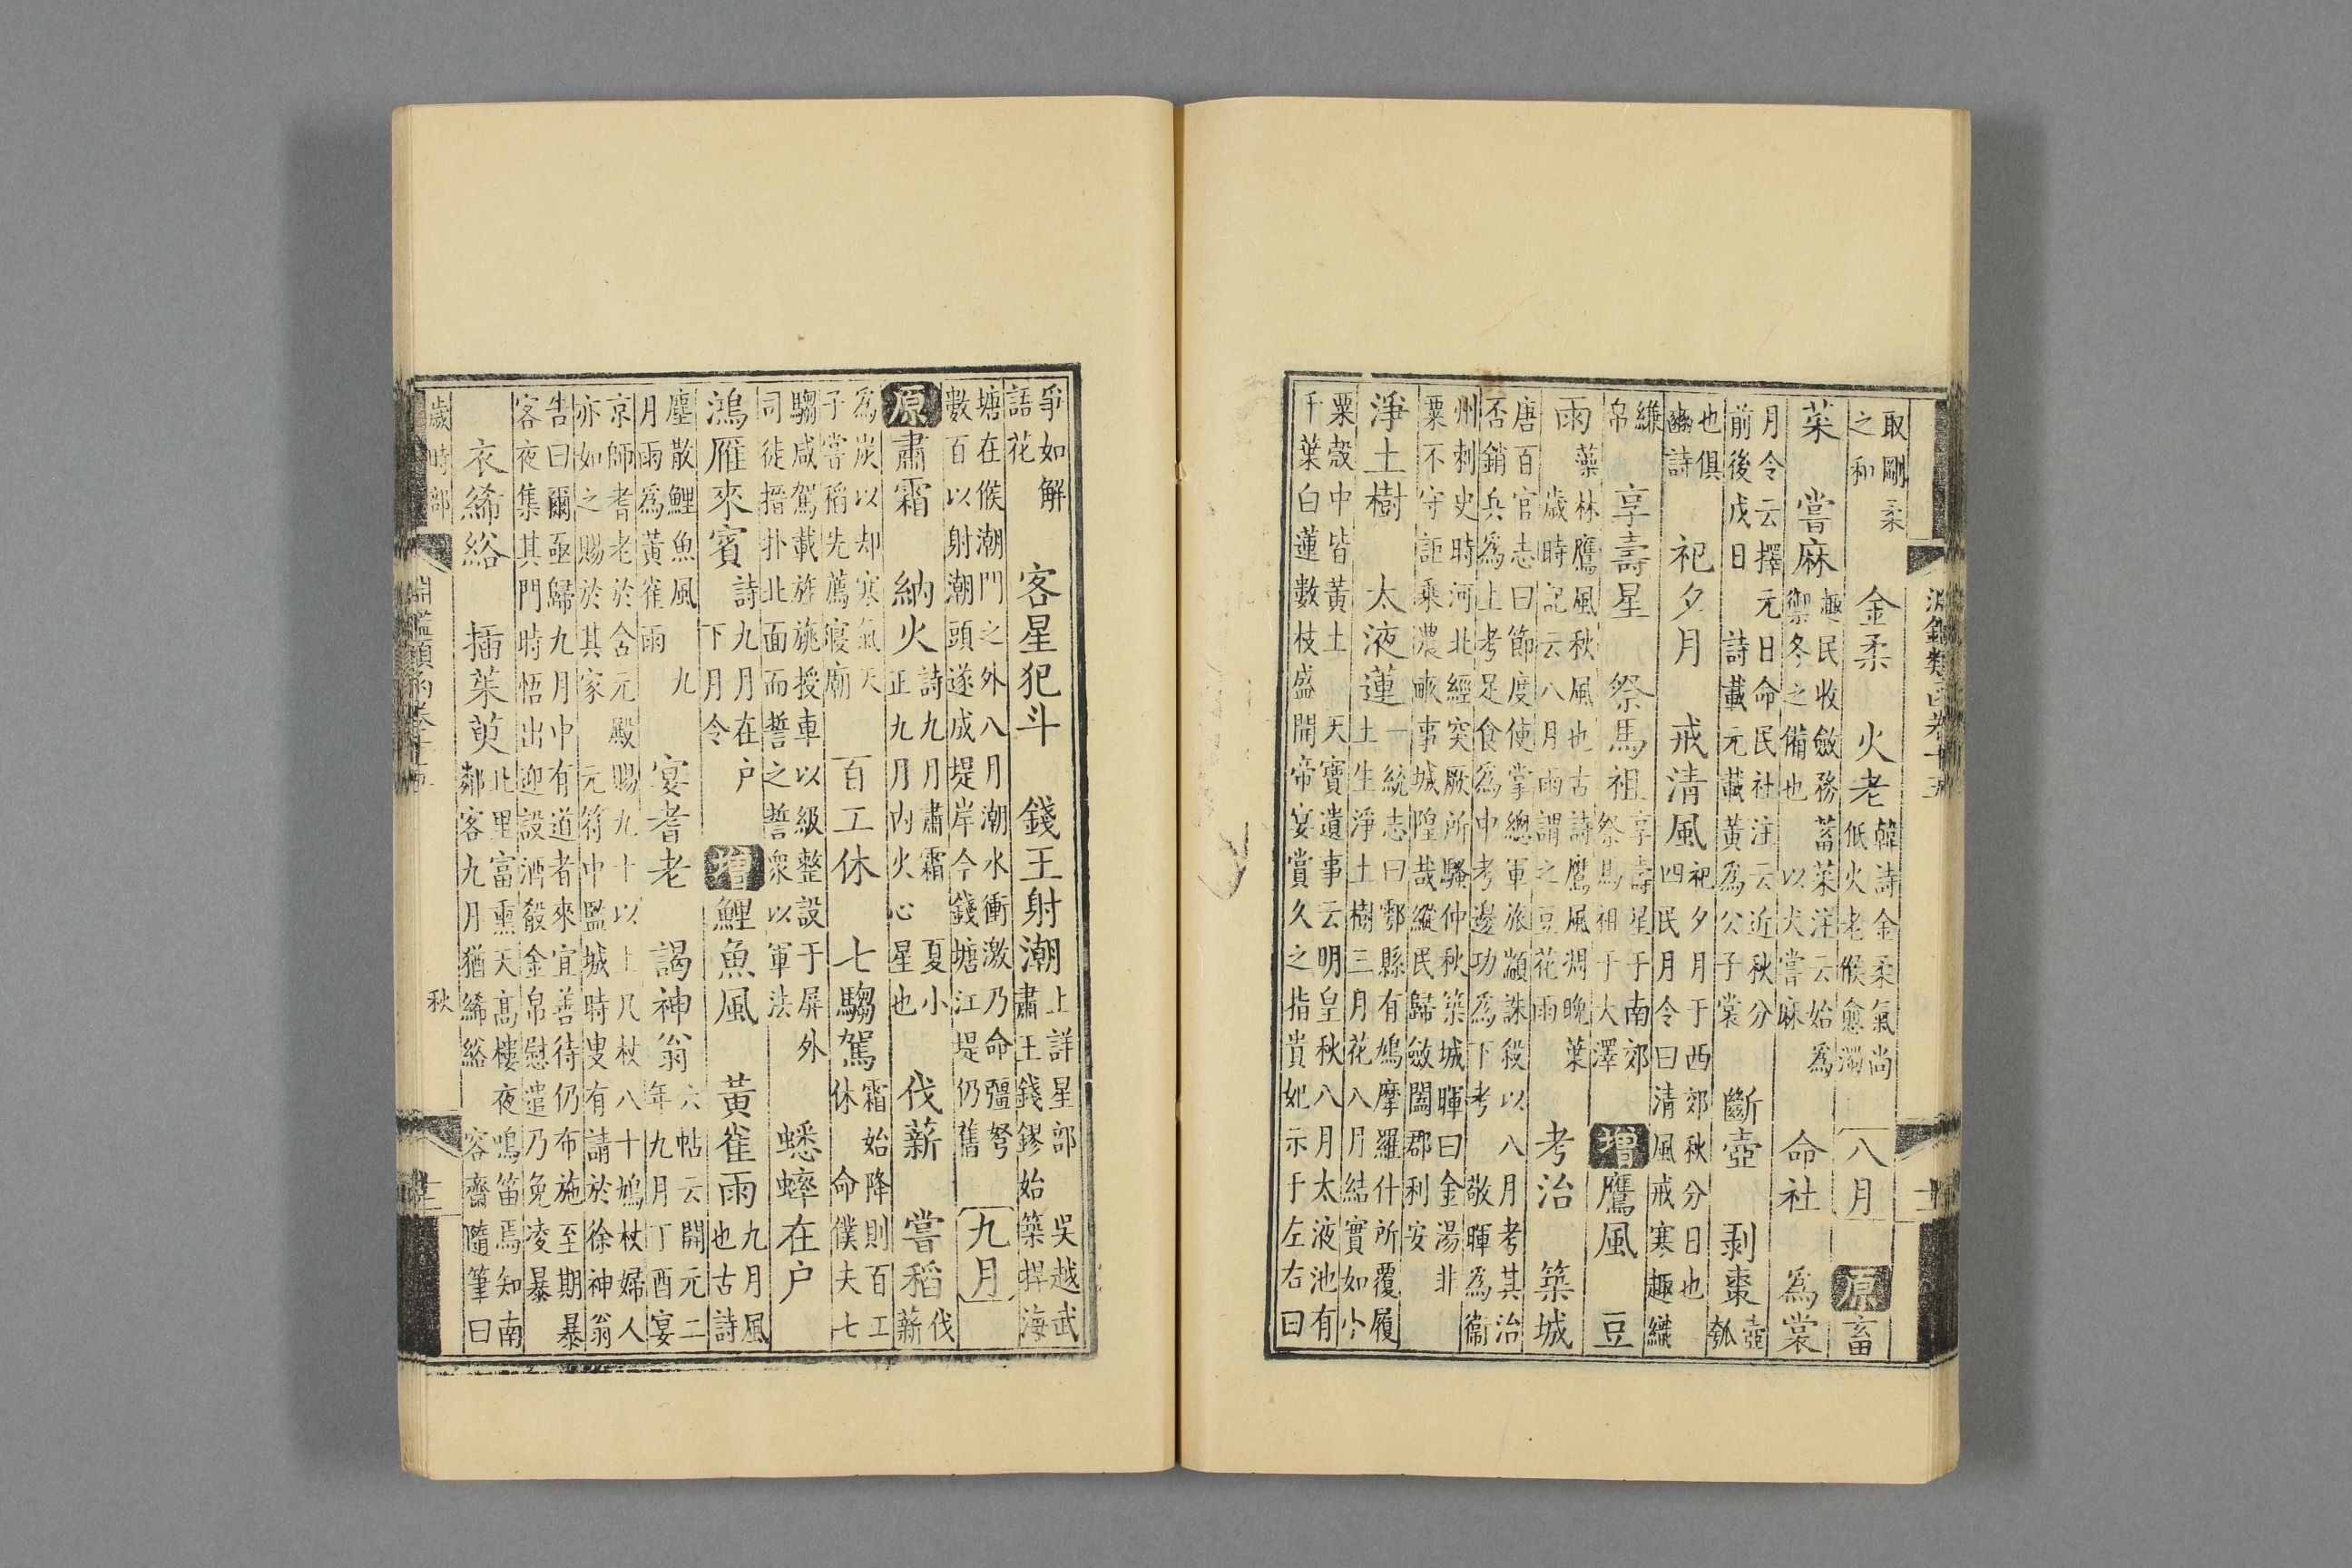 淵鑑類函卷十五
取剛柔之和 金柔 火老 韓詩金柔氣尚低火老候愈濁 八月 原 畜
菜 嘗麻 趣民收斂務蓄菜注云始為禦冬之備也 以犬嘗麻 命社 為裳
月令云擇元日命民社注云近秋分前後戊日 詩載元載黃為公子裳 斷壺 剝棗 壺瓠
也俱豳詩 祀夕月 戒清風 祀夕月于西郊秋分日也四民月令曰清風戒寒趣織
縑帛 享壽星 祭馬祖 享壽星于南郊祭馬祖于大澤 增 鷹風 豆
雨 藻林鷹風秋風也古詩鷹風凋晚葉歲時記云八月雨謂之豆花雨 考治 築城
唐百官志曰節度使掌總軍旅顓誅殺以否銷兵為上考足食為中考邊功為下考 八月考其治敬暉為衞
州刺史時河北經突厥所騷仲秋築城暉曰金湯非粟不守詎乘農畝事城隍哉縱民歸斂闔郡利安
淨土樹 太液蓮 一統志曰鄠縣有鳩摩羅什所覆履土土生淨土樹三月花八月結實如小
粟殼中皆黃土 天寶遺事云明皇秋八月太液池有千葉白蓮數枝盛開帝宴賞久之指貴妃示于左右曰
爭如解語花 客星犯斗 錢王射潮 上詳星部 吳越武肅王錢鏐始築捍海
塘在候潮門之外八月潮水衝激乃命彊弩數百以射潮頭遂成堤岸今錢塘江堤仍舊 九月
原 肅霜 納火 詩九月肅霜 夏小正九月內火心星也 伐薪 嘗稻 伐薪
為炭以却寒氣天子嘗稻先薦寢廟 百工休 七騶駕 霜始降則百工休 命僕夫七
騶咸駕載旌旐授車以級整設于屏外司徒搢扑北面而誓之誓衆以軍法 蟋蟀在户
鴻雁來賓 詩九月在户下月令 增 鯉魚風 黃雀雨 九月風也古詩
塵散鯉魚風 九月雨為黃雀雨 宴耆老 謁神翁 六帖云開元二年九月丁酉宴
京師耆老於含元殿賜九十以上几杖八十鳩杖婦人亦如之賜於其家 元符中監城時叟有請於徐神翁
告曰爾亟歸九月中有道者來宜善待仍布施至期暴客夜集其門時悟出迎設酒殽金帛慰遣乃免凌暴
衣絺綌 插茱萸 北里富熏天高樓夜鳴笛焉知南鄰客九月猶絺綌 容齋隨筆曰
歲時部 秋
淵鑑類函卷十五